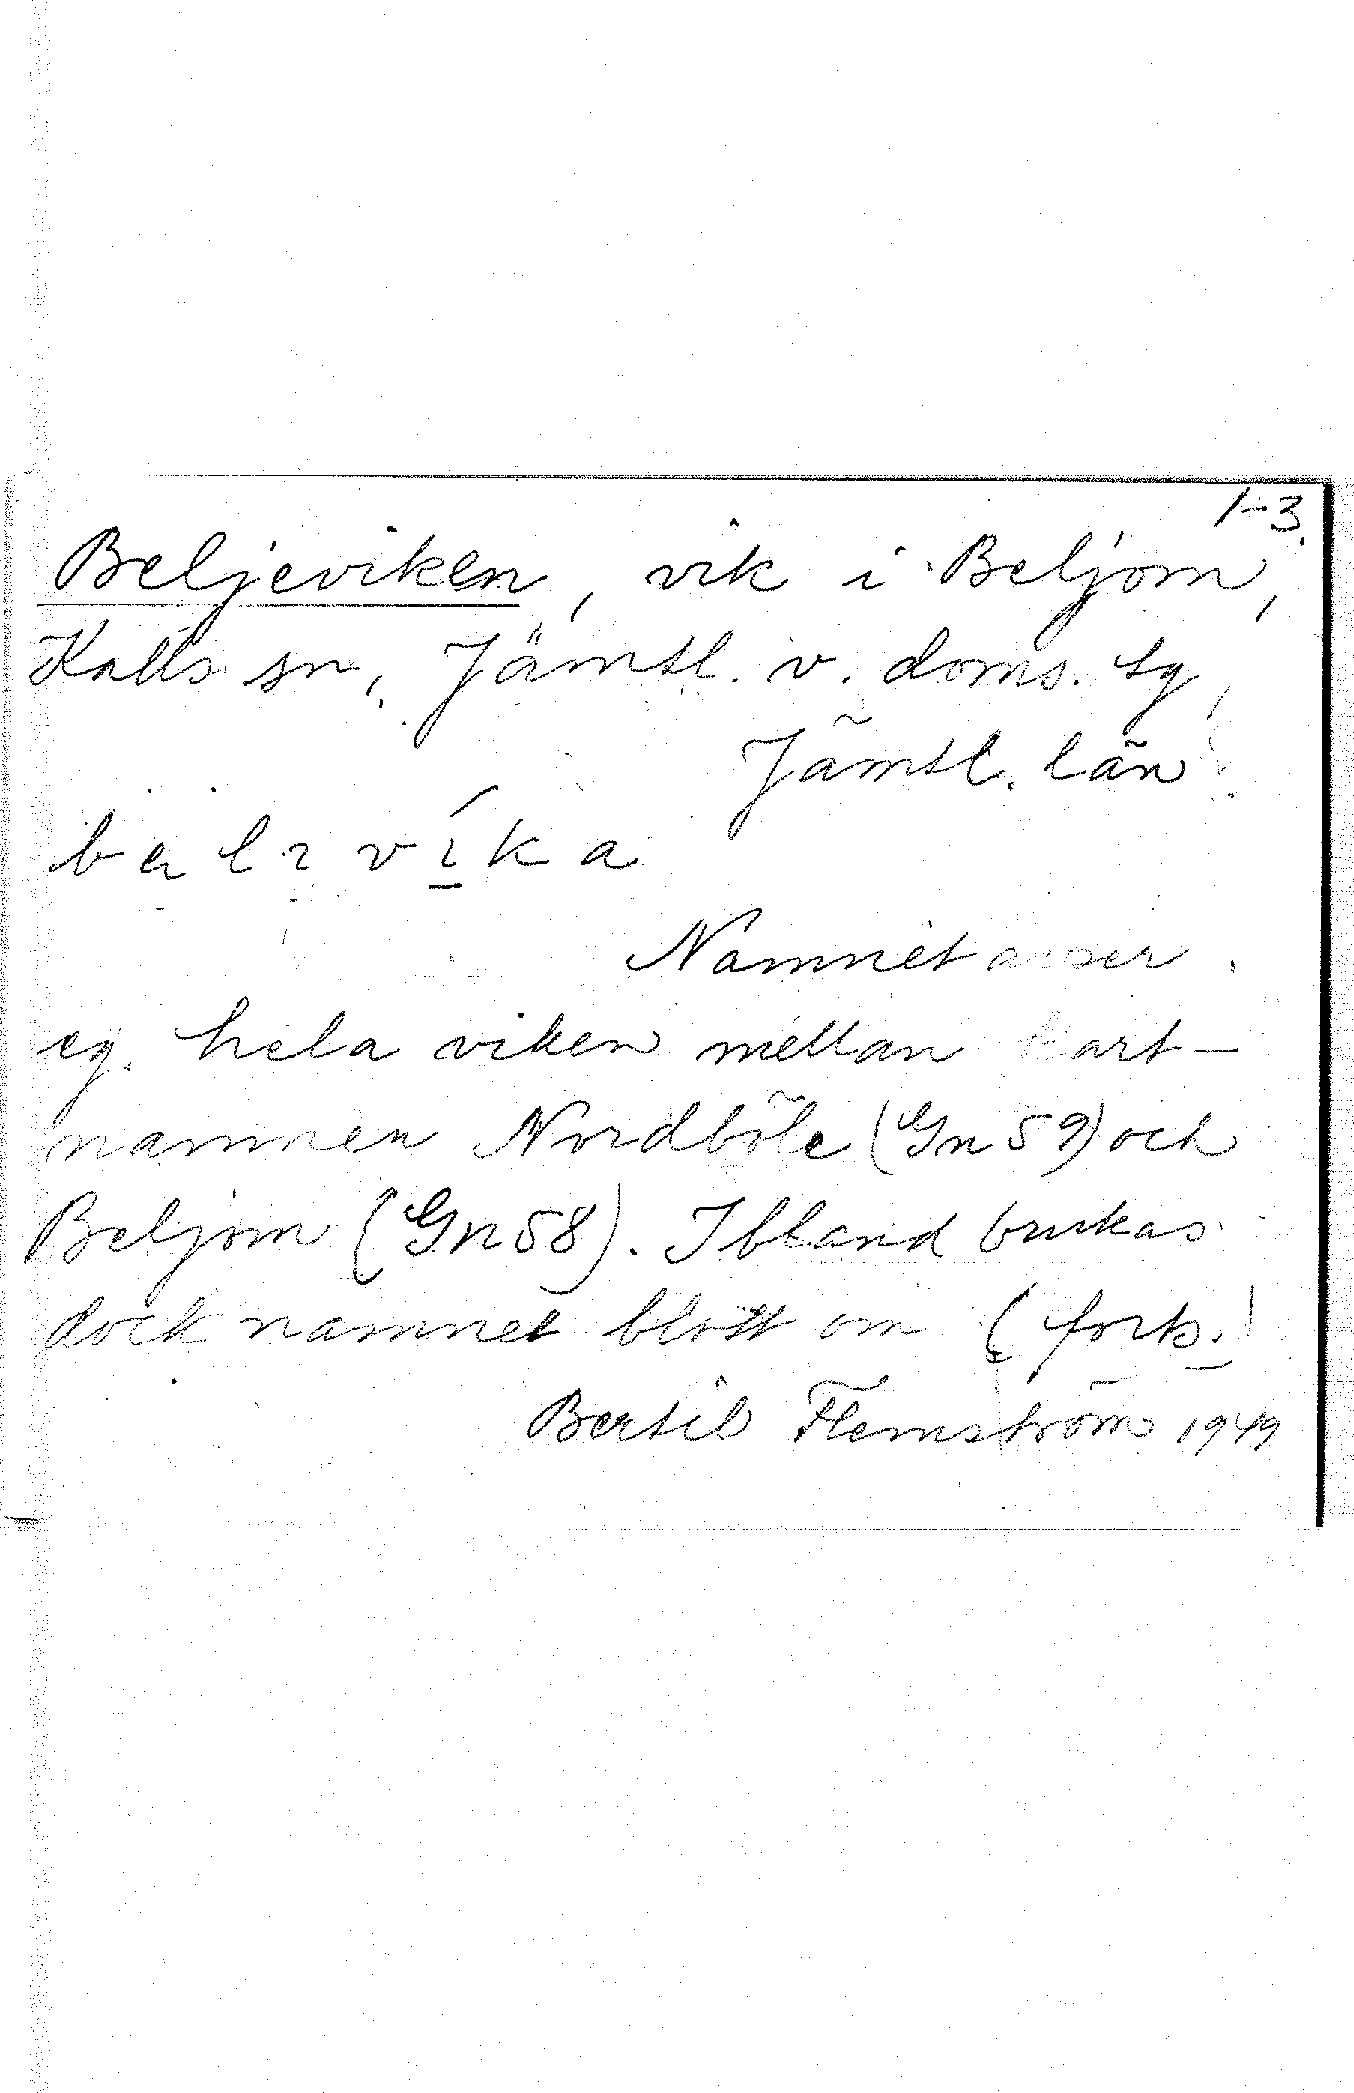 1-3.
Beljeviken, vik i Beljom,
Kalls sn, Jämtl. v. doms. sg,
Jämtl. län.
Namnet avser
eg. hela viken mellan kart-
namnen Nordböle (Gn 59) och
Beljom (Gn 58). Ibland brukas
dock namnet blott om (forts.)
Bertil Flemström 1949